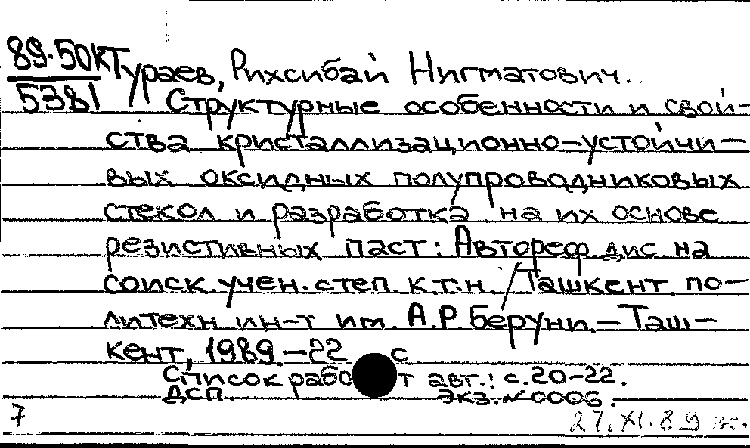 89-50КТ Тураев, Рихсибай Нигматович.
5381 Структурные особенности и свой-
ства кристаллизационно-устойчи-
вых оксидных полупроводниковых
стекол и разработка на их основе
резистивных паст: Автореф. дис на
соиск. учен. степ к.т.н. / Ташкент по-
литехн ин-т им. А.Р Беруни. - Таш-
кент, 1989. - 22 с
Список рабо т авт.: с. 20-22.
ДСП. Экз. № 0006.
7 27.XI.89